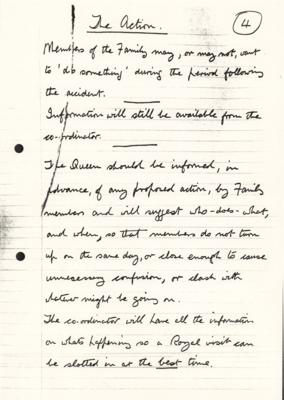 The Action.
4
Members of the Family may, or may not, want
to 'do something' during the period following
the accident.
Information will still be available from the
co-ordinator.
The Queen should be informed, in
advance, of any proposed action, by Family
members and will suggest who-does-what,
and when, so that members do not turn
up on the same day, or close enough to cause
unnecessary confusion, or clash with
whatever might be going on.
The co-ordinator will have all the information
on whats happening so a Royal visit can
be slotted in at the best time.